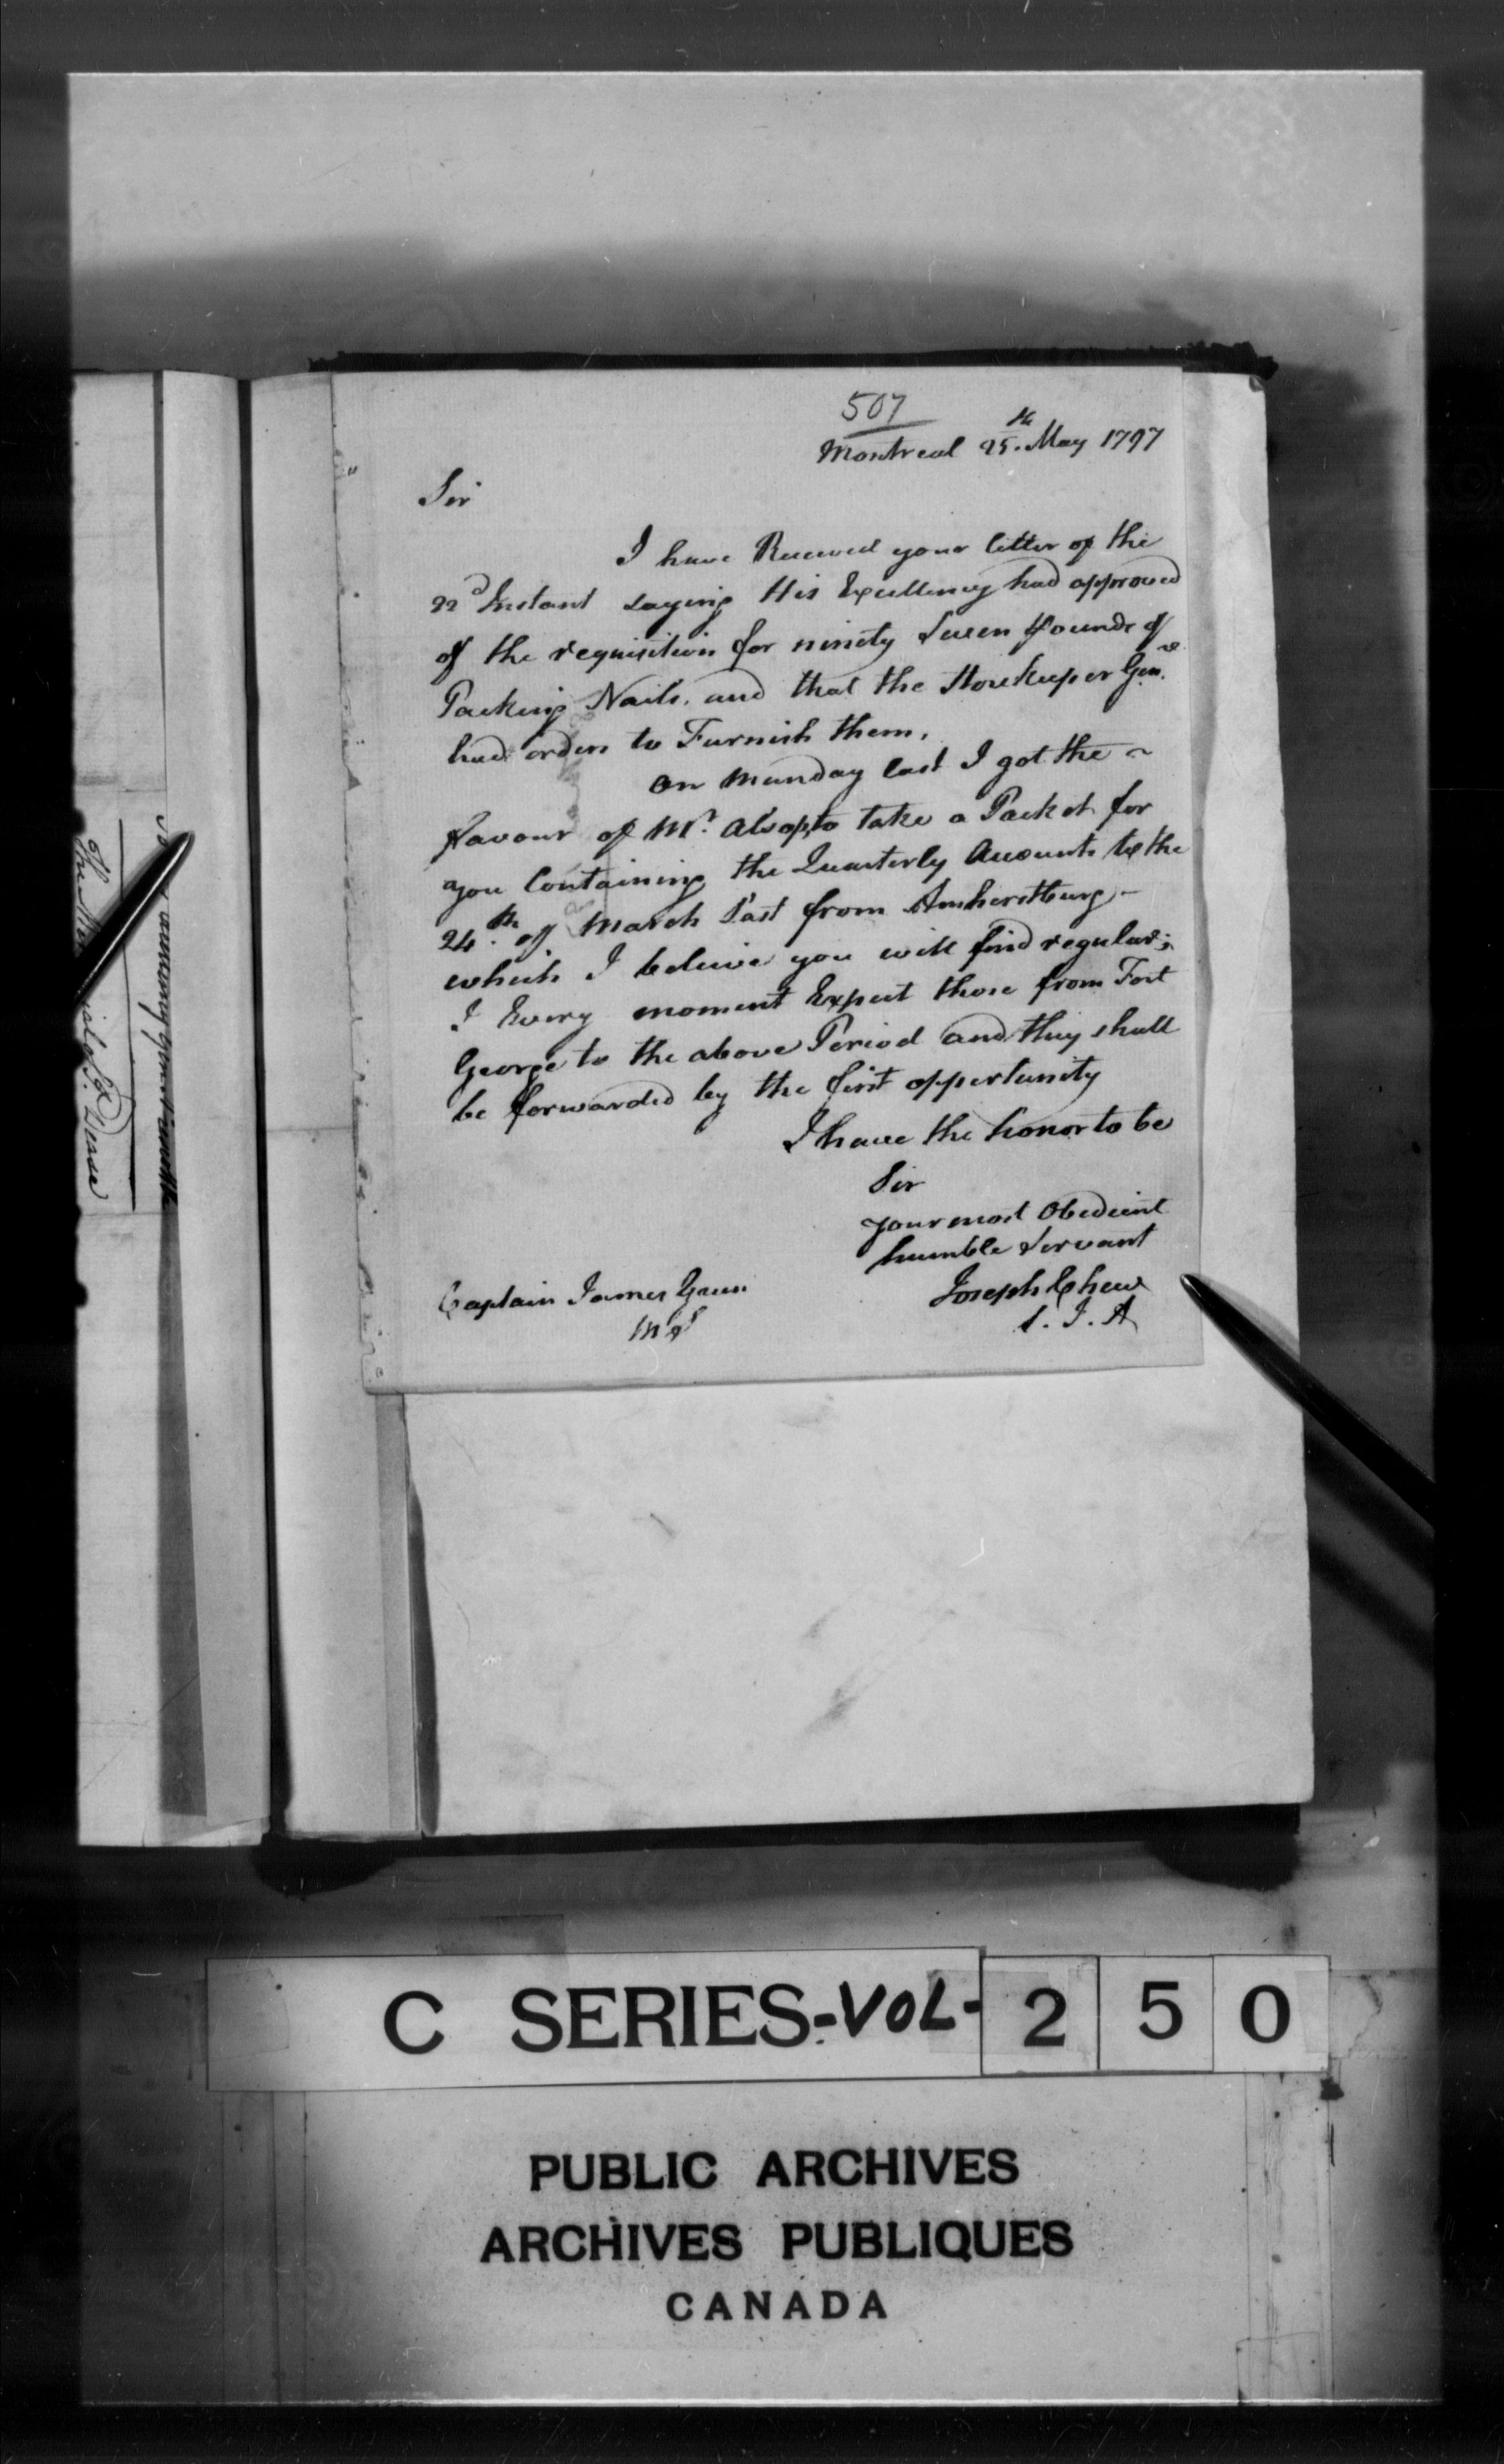 507
Montreal 25th. May 1797
Sir
I have Received your letter of the
22d Instant saying His Excellency had approved
of the requisition for ninety Seven Pounds of
Packing Nails, and that the Storekeeper Genl.
had orders to Furnish them.
on Munday last I got the ~
favour of Mr. Alsop, to take a Packet for
you Containing the Quarterly Accounts to the
24th. of March Past from Amherstburg -
which I beleive you will find regular;
I Every moment Expect those from Fort
George to the above Period and they shall
be forwarded by the first opportunity
I have the honor to be
Sir
your most Obedient
humble Servant
Joseph Chew
S. I. A
Captain James Green
M S
Dease
C SERIES-VOL-250
PUBLIC ARCHIVES
ARCHIVES PUBLIQUES
CANADA